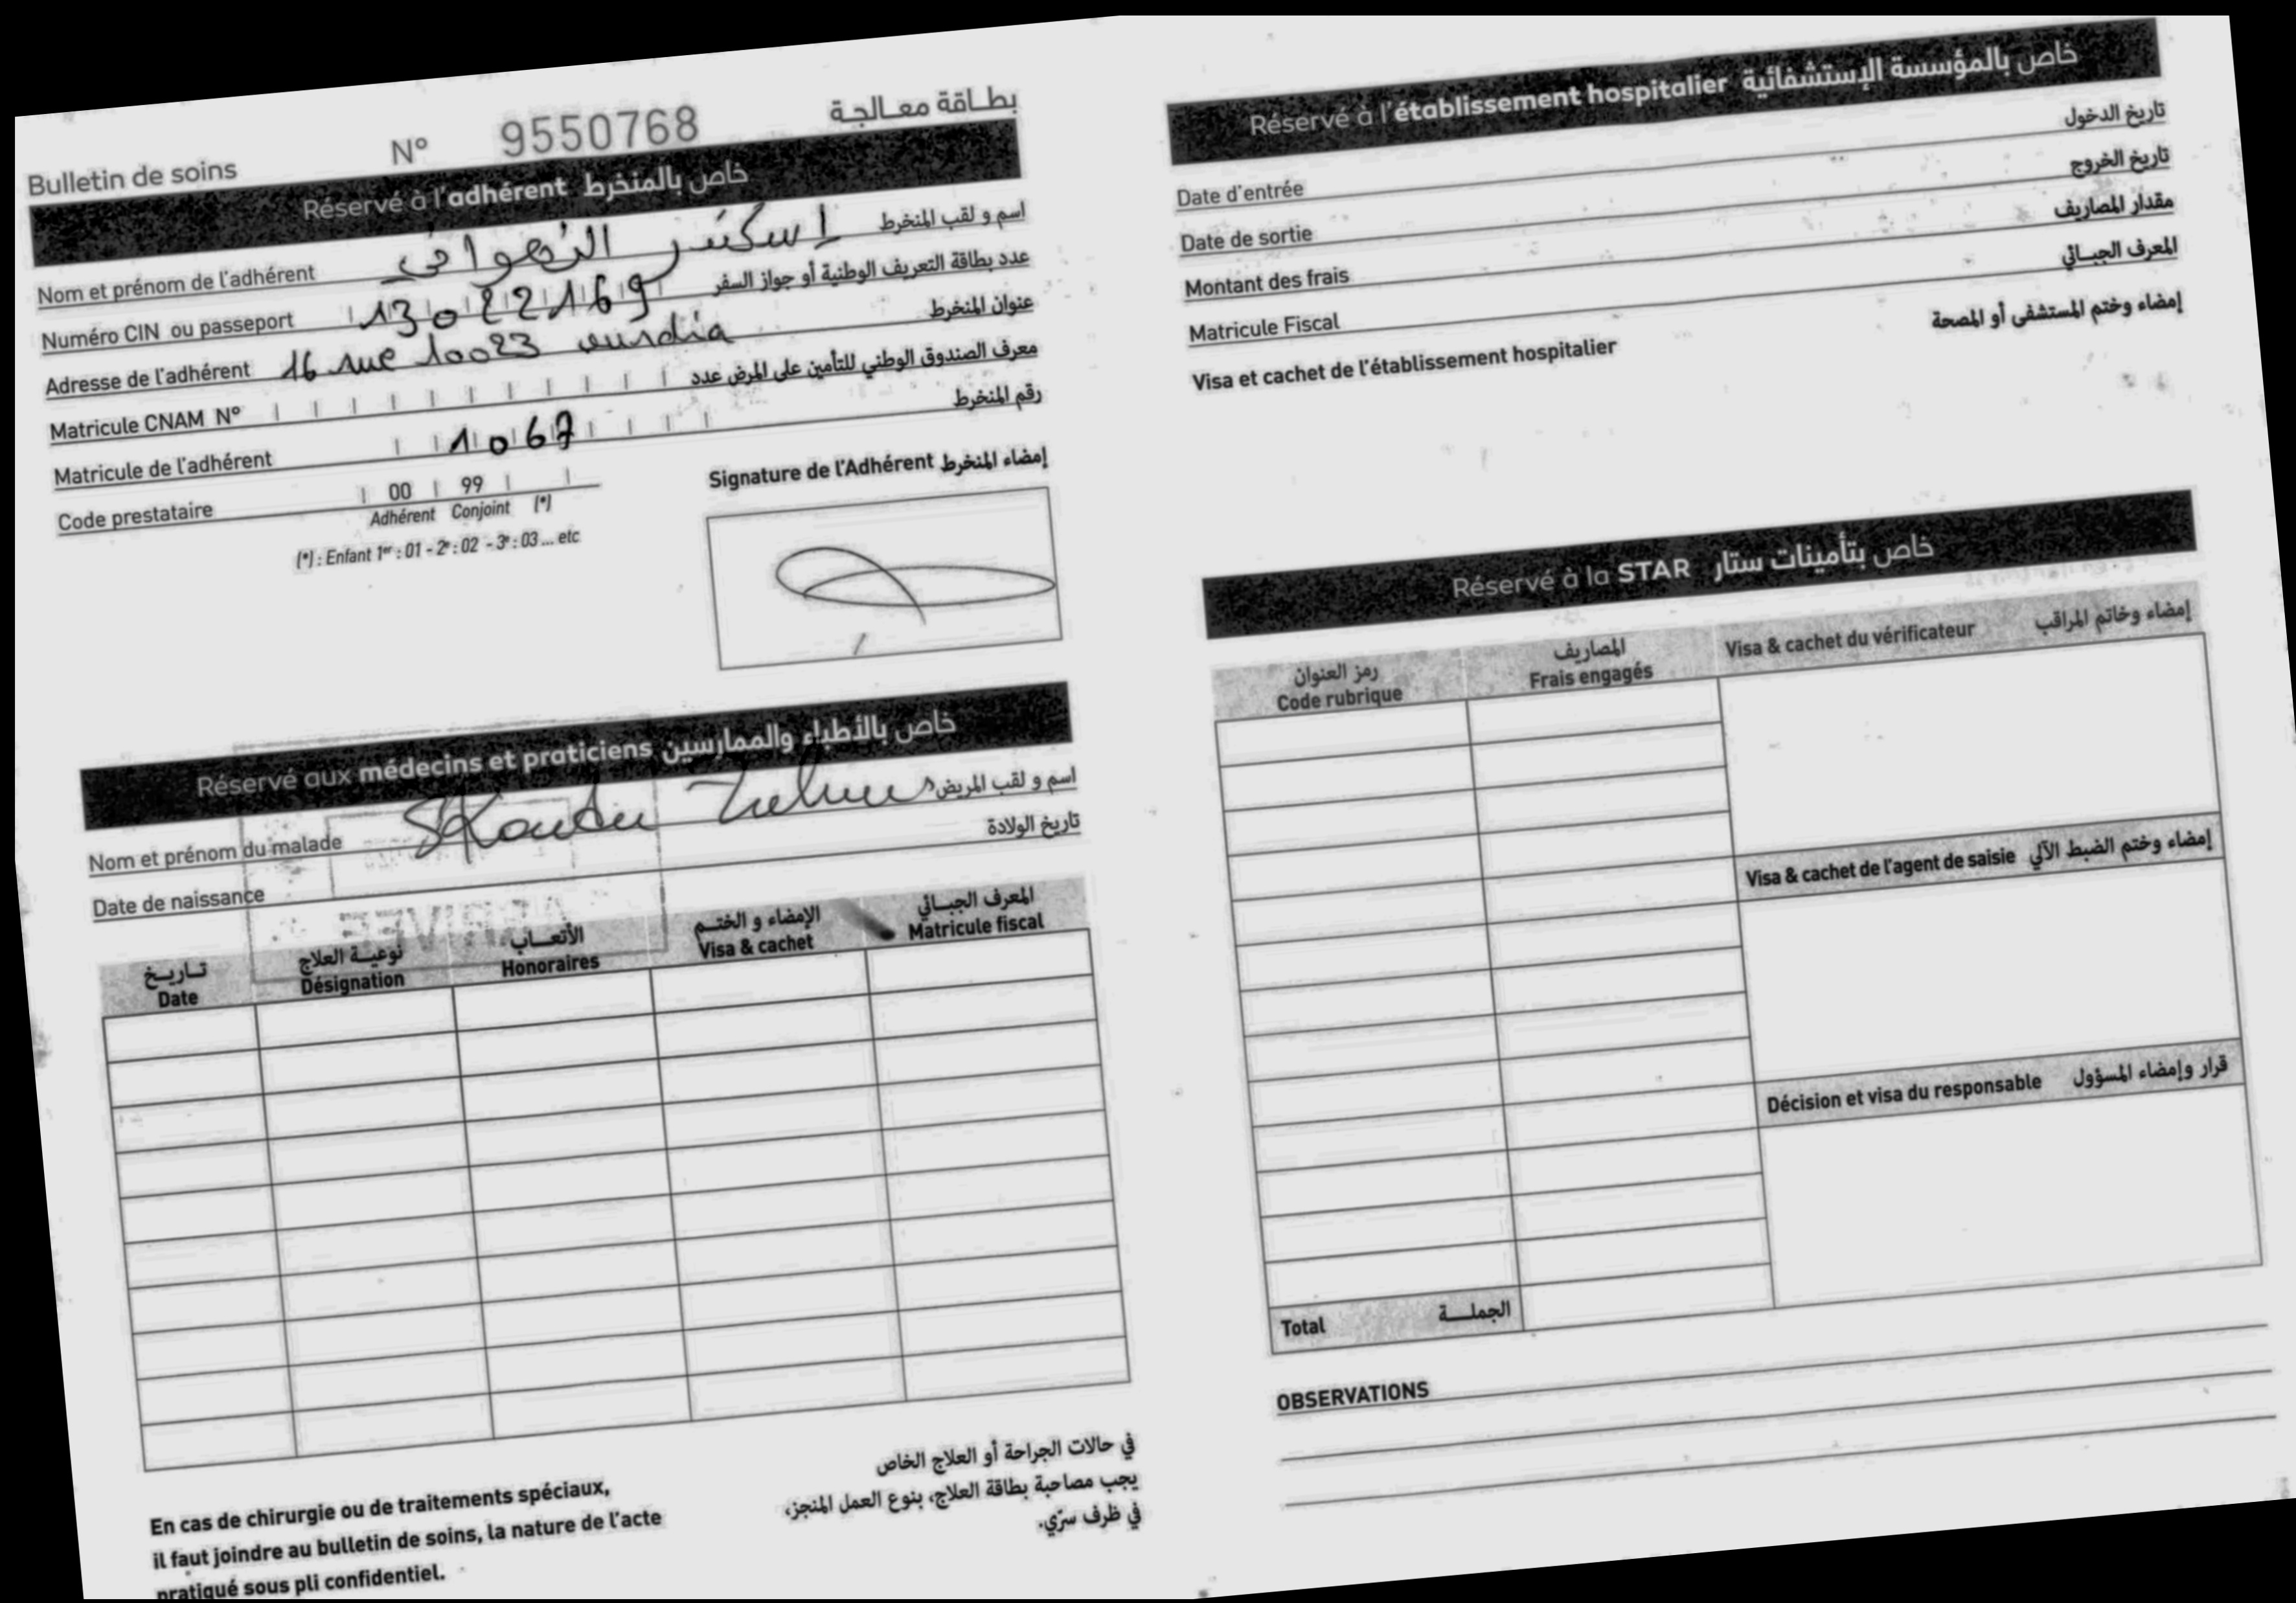 Bulletin de soins N° 9550768 بطاقة معالجة
Réservé à l'adhérent خاص بالمنخرط
Nom et prénom de l'adhérent إسكندر النهواني اسم و لقب المنخرط
Numéro CIN ou passeport 13022169 عدد بطاقة التعريف الوطنية أو جواز السفر
Adresse de l'adhérent 16 rue 10023 عنوان المنخرط
Matricule CNAM N° معرف الصندوق الوطني للتأمين على المرض عدد
Matricule de l'adhérent 1067 رقم المنخرط
Code prestataire 00 99
Adhérent Conjoint (*)
(*) : Enfant 1er : 01 - 2e : 02 - 3e : 03 ... etc
Signature de l'Adhérent إمضاء المنخرط
Réservé aux médecins et praticiens خاص بالأطباء والممارسين
Nom et prénom du malade اسم و لقب المريض
Date de naissance تاريخ الولادة
تاريخ نوعية العلاج الأتعاب الإمضاء و الختم المعرف الجبائي
Date Désignation Honoraires Visa & cachet Matricule fiscal
En cas de chirurgie ou de traitements spéciaux,
il faut joindre au bulletin de soins, la nature de l'acte
pratiqué sous pli confidentiel.
في حالات الجراحة أو العلاج الخاص
يجب مصاحبة بطاقة العلاج، بنوع العمل المنجز،
في ظرف سرّي.
Réservé à l'établissement hospitalier خاص بالمؤسسة الإستشفائية
Date d'entrée تاريخ الدخول
Date de sortie تاريخ الخروج
Montant des frais مقدار المصاريف
Matricule Fiscal المعرف الجبائي
Visa et cachet de l'établissement hospitalier إمضاء وختم المستشفى أو المصحة
Réservé à la STAR خاص بتأمينات ستار
رمز العنوان المصاريف
Code rubrique Frais engagés Visa & cachet du vérificateur إمضاء وخاتم المراقب
Visa & cachet de l'agent de saisie إمضاء وختم الضبط الآلي
Décision et visa du responsable قرار وإمضاء المسؤول
Total الجملة
OBSERVATIONS